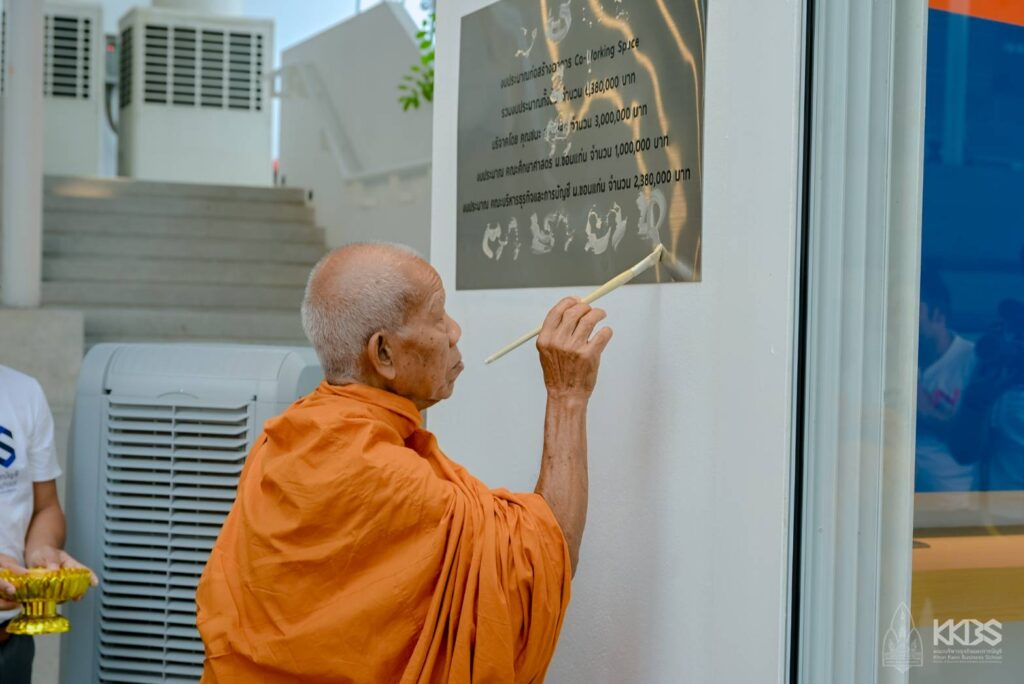 งบประมาณก่อสร้างอาคาร Co-Working Space
รวมงบประมาณทั้งสิ้น จำนวน 6,380,000 บาท
บริจาคโดย คุณชนะ จำนวน 3,000,000 บาท
งบประมาณ คณะศึกษาศาสตร์ ม.ขอนแก่น จำนวน 1,000,000 บาท
งบประมาณ คณะบริหารธุรกิจและการบัญชี ม.ขอนแก่น จำนวน 2,380,000 บาท
S
KKBS
คณะบริหารธุรกิจและการบัญชี
Khon Kaen Business School